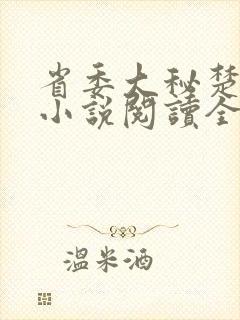 省委大秘楚
小說閱讀全
溫米酒